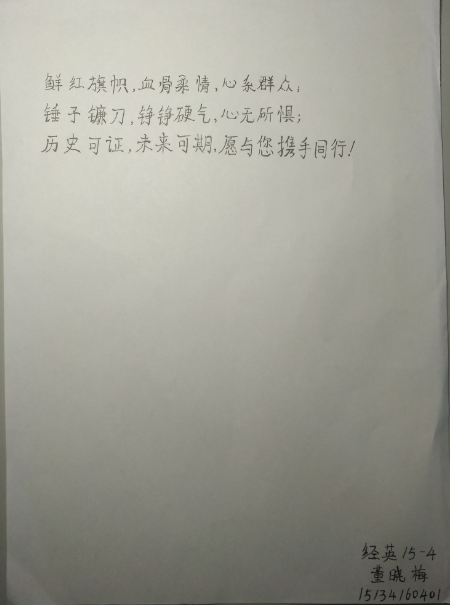 鲜红旗帜,血骨柔情,心系群众;
锤子镰刀,铮铮硬气,心无所惧;
历史可证,未来可期,愿与您携手同行!
经英15-4
董晓梅
15134160401